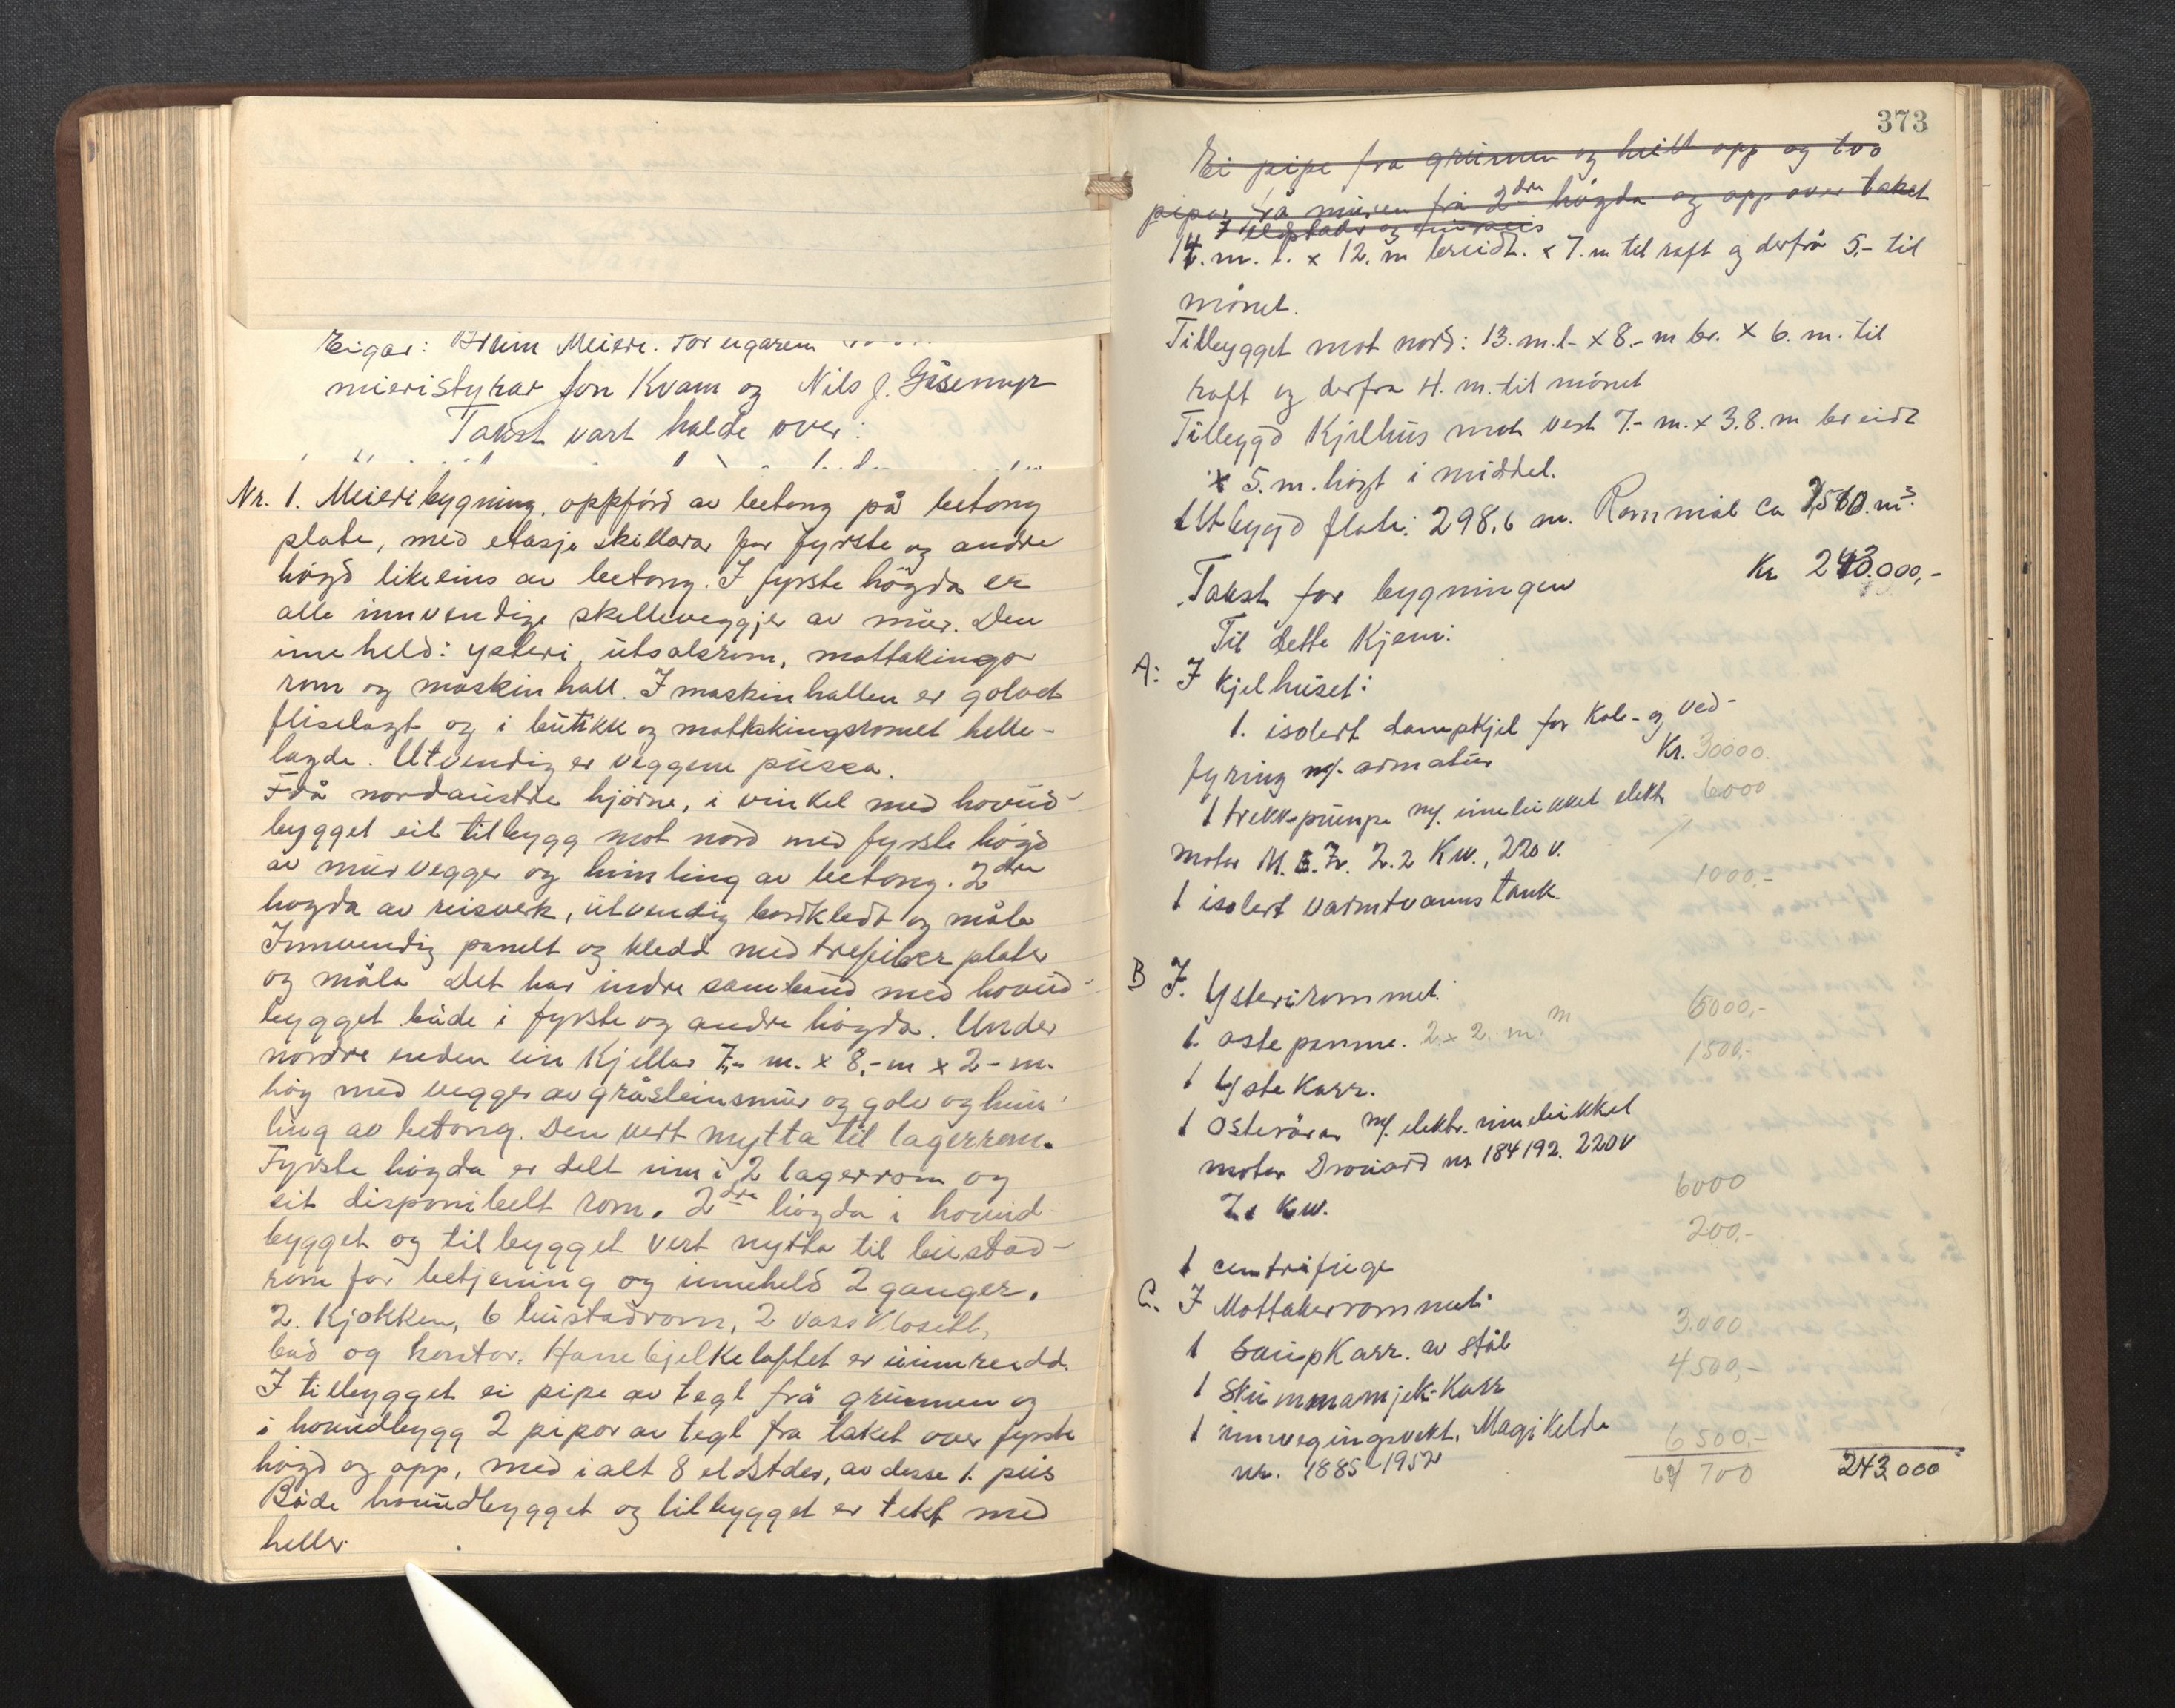 Eigar: Breim Meieri. For eigaren
mieristyrar Jon Kvam og Nils J. Gisemyr
Takst vart halde over:
Nr. 1. Meieribygning, oppförd av betong på betong
plate, med etasje skillarar for fyrste og andre
högd likeeins av betong. I fyrste högda er
alle innvendige skilleveggjer av mur. Den
inneheld: ysteri, utsalsrom, mottakings
rom og maskinhall. I maskinhallen er golvet
fliselagt og i butikk og mottakingsromet helle-
lagde. Utvendig er veggene pussa.
Frå nordaustre hjörne, i vinkel med hovud-
bygget eit tilbygg mot nord med fyrste högd
av murvegger og himling av betong. 2dre
högda av reisverk, utvendig bordkledt og måla
Innvendig panelt og kledd med trefiberplater
og måla Det har indre samband med hovud-
bygget både i fyrste og andre högda. Under
nordre enden ein Kjellar 7,- m. x 8,- m x 2- m.
høg med vegger av gråsteinsmur og golv og him-
ling av betong. Den vert nytta til lagerrom.
Fyrste högda er delt inn i 2 lagerrom og
eit disponibelt rom. 2dre högda i hovud
bygget og tilbygget vert nytta til bustad-
rom for betjening og inneheld 2 ganger,
2. Kjøkken, 6 bustadrom, 2 vassklosett,
bad og kontor. Hanebjelkeloftet er uinnreidd.
I tilbygget ei pipe av tegl frå grunnen og
i hovudbygg 2 pipor av tegl fra taket over fyrste
högd og opp, med i alt 8 eldstder, av desse 1. peis
Både hovudbygget og tilbygget er tekt med
heller.
373
Ei pipe fra grunnen og heilt opp og tvo
pipor frå muren frå 2dre högda og opp over taket
7 eldstader og ein peis
14. m. l. x 12. m breidt. x 7. m til raft og derfrå 5,- til
mönet.
Tilbygget mot nord: 13. m. l- x 8.- m br. x 6. m. til
raft og derfra 4. m. til mönet
Tilbygd Kjelhus mot vest 7.- m. x 3.8. m breidt
x 5. m. högt i middel.
Utbygd flate: 298,6 m. Rommål ca 2560. m³.
Takst for bygningen Kr 243.000,-
Til dette Kjem:
A: I Kjelhuset:
1. isolert dampkjel for Kol- og ved-
fyring m/. armatur Kr. 30000.
1 trekkpumpe m/. innebikket elekt. 6000
motor M. E. Z. 2.2 Kw., 220 v.
1 isolert varmtvanns tank. 1000,-
B I. Ysterirommet:
1. oste panne. 2 x 2. m. m 6000,-
1 Yste Karr. 1500,-
1 Osterörar m/. elektr. innebikket
motor Drouard nr. 184192. 220 v
Kw. 6000
1 centrifuge 200,-
C. I Mottakerrommet:
1 Saup Karr. av Stål 3.000
1 Skummamjelk-Karr 4500,-
1 innvegingsvekt. Magikelda
nr. 1885 1952 6500,-
64 700 243.000